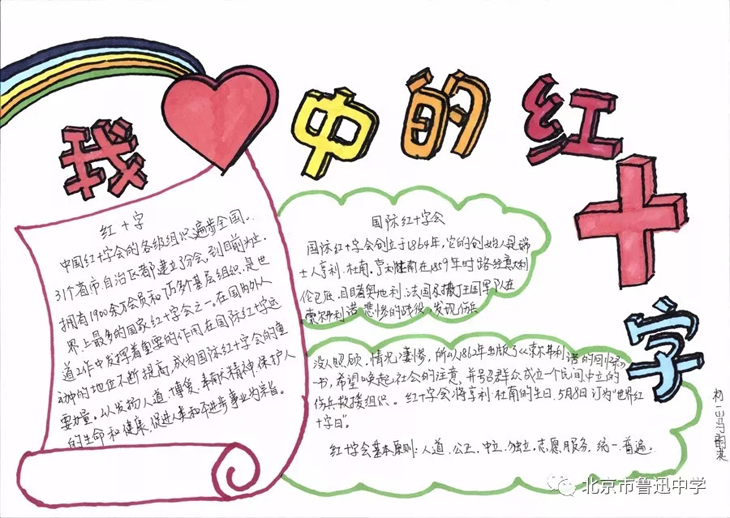 我❤中的红十字
红十字
中国红十字会的各级组织遍步全国.
31个省市自治区都建立了分会,到目前为止.
拥有1900余万会员和7万多个基层组织.是世
界上最多的国家红十字会之一.在国内外人
道工作中发挥着重要的作用.在国际红十字运
动中的地位不断提高,成为国际红十字会的重
要力量。以发扬人道、博爱、奉献精神,保护人
的生命和健康,促进人类和平进步事业为宗旨。
国际红十字会
国际红十字会创立于1864年,它的创始人是瑞
士人亨利·杜南,亨利·杜南在1859年时路经意大利
伦巴底,目睹奥地利、法国及撒丁王国军队在
索尔弗利诺悲惨的战役,发现伤兵
没人照顾,情况凄惨,所以1862年出版了《索尔弗利诺的回忆》
一书,希望唤起社会的注意,并号召群众成立一个民间中立的
伤兵救援组织。红十字会将亨利·杜南的生日,5月8日订为“世界红
十字日”。
红十字会基本原则:人道、公正、中立、独立、志愿服务、统一、普遍。
初一
北京市鲁迅中学